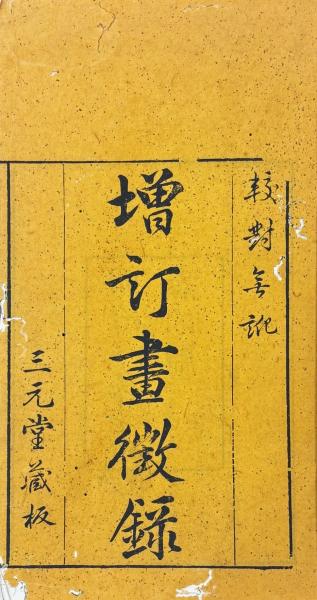 較對無訛
增訂畫徵錄
三元堂藏板